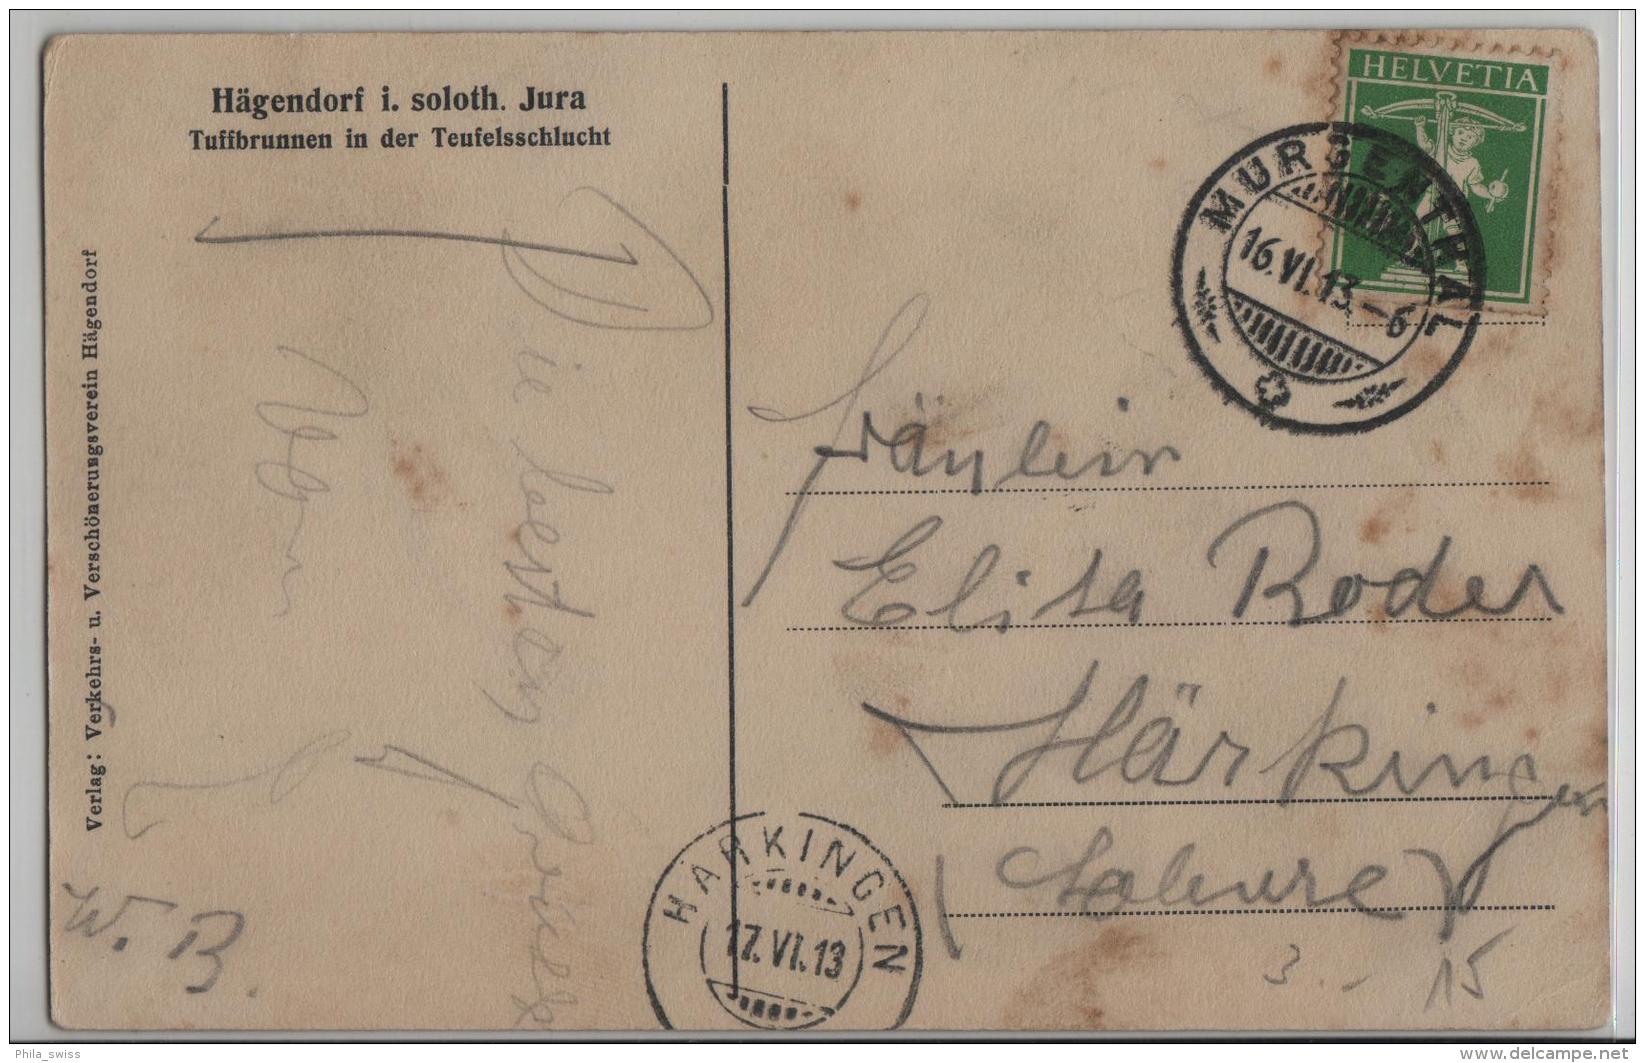 Hägendorf i. soloth. Jura
Tuffbrunnen in der Teufelsschlucht
Verlag: Verkehrs- u. Verschönerungsverein Hägendorf
HELVETIA
MURGENTHAL
16.VI.13.-6
Die besten Grüsse
von
W. B.
Fräulein
Elisa Roder
Härkingen
HÄRKINGEN
17.VI.13
3.- 15
Phila_swiss
delcampe.net